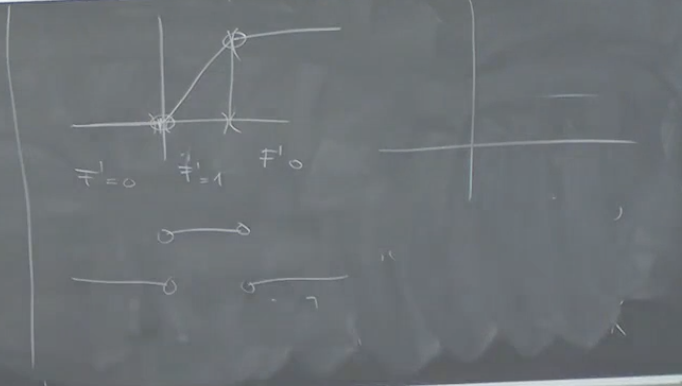 F'=0 F'=1 F'0